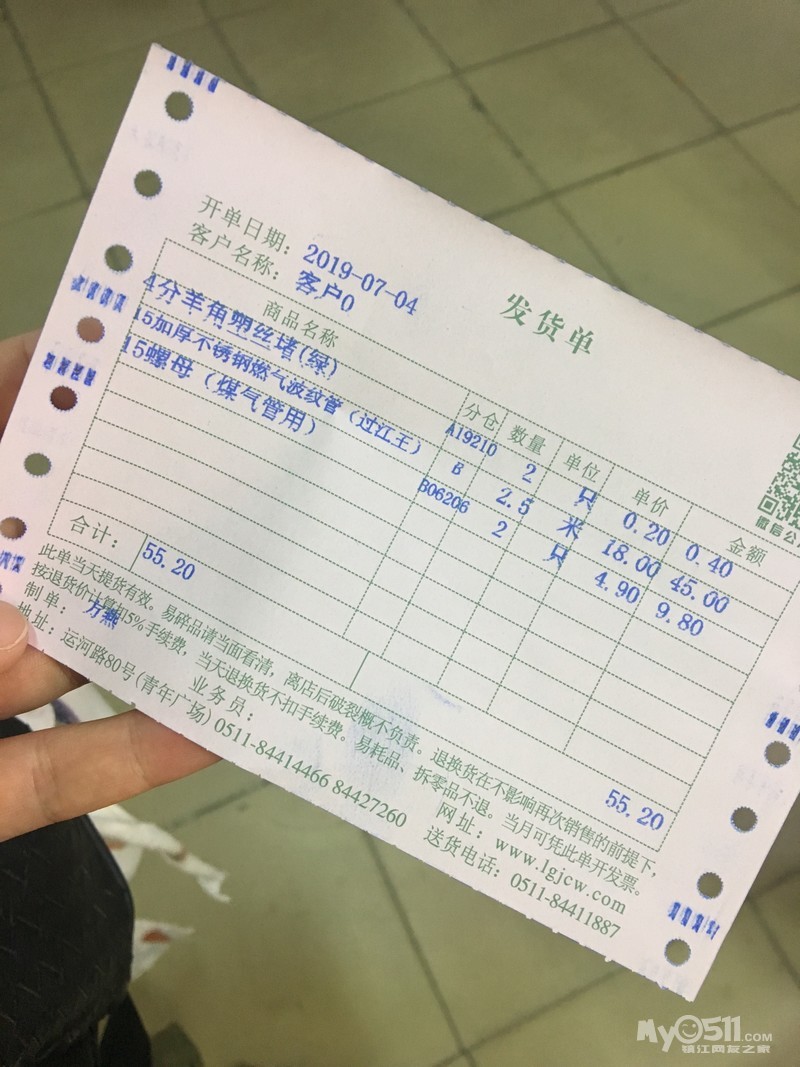 发货单
开单日期：2019-07-04
客户名称：客户0
商品名称 分仓 数量 单位 单价 金额
4分羊角塑丝堵(绿) A19210 2 只 0.20 0.40
15加厚不锈钢燃气波纹管（过江王） B 2.5 米 18.00 45.00
15螺母（煤气管用） B06206 2 只 4.90 9.80
合计：55.20 55.20
此单当天提货有效。易碎品请当面看清，离店后破裂概不负责。退换货在不影响再次销售的前提下，
按退货价计算扣5%手续费，当天退换货不扣手续费。易耗品、拆零品不退。当月可凭此单开发票。
制单：方燕 业务员： 网址：www.lgjcw.com
地址：运河路80号(青年广场) 0511-84414466 84427260 送货电话：0511-84411887
微信公
My0511.COM
镇江网友之家